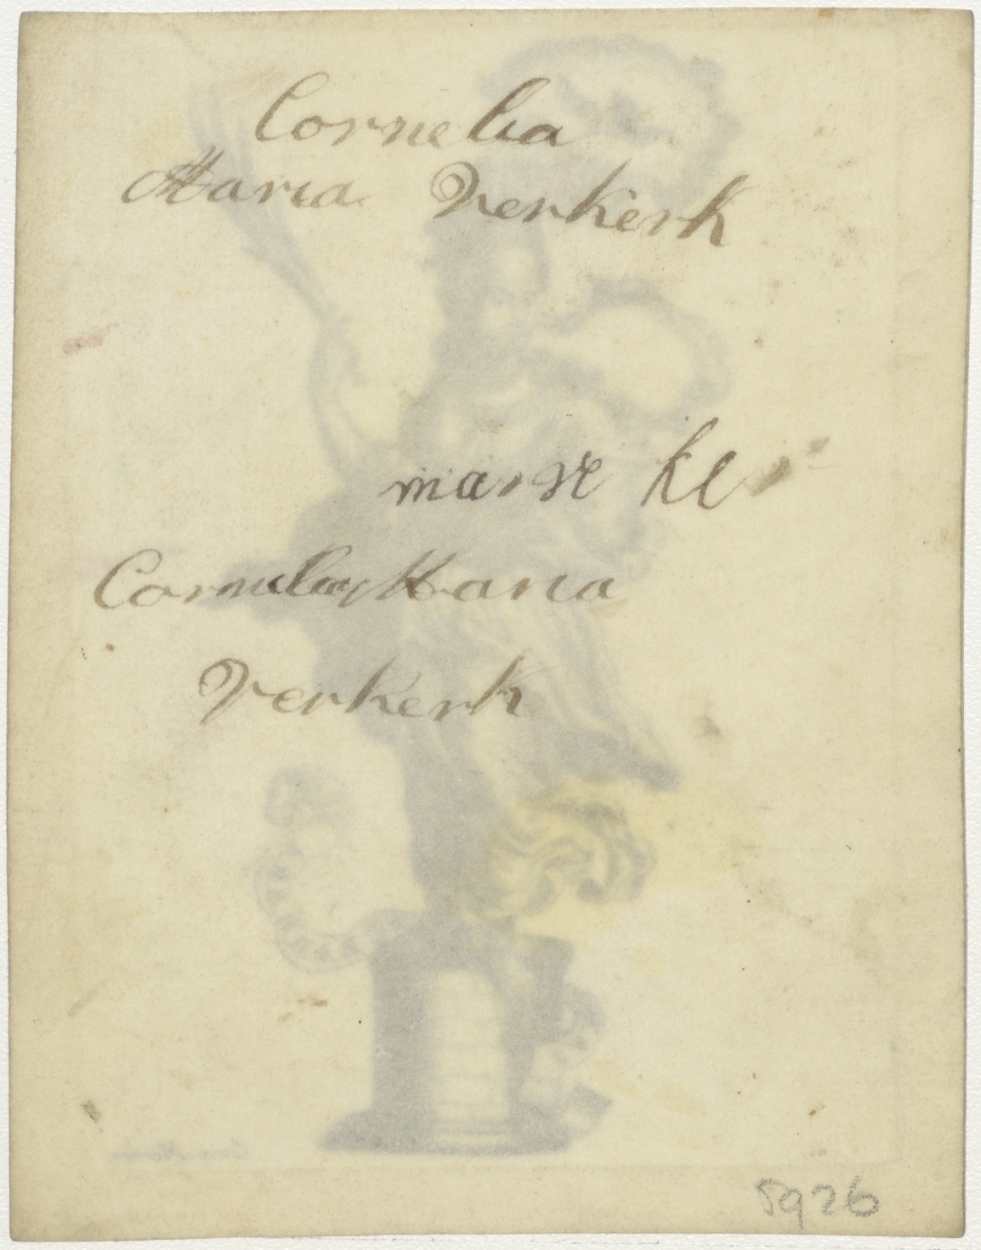 Cornelia
Maria Verkerk
Cornelia Maria
Verkerk
5926